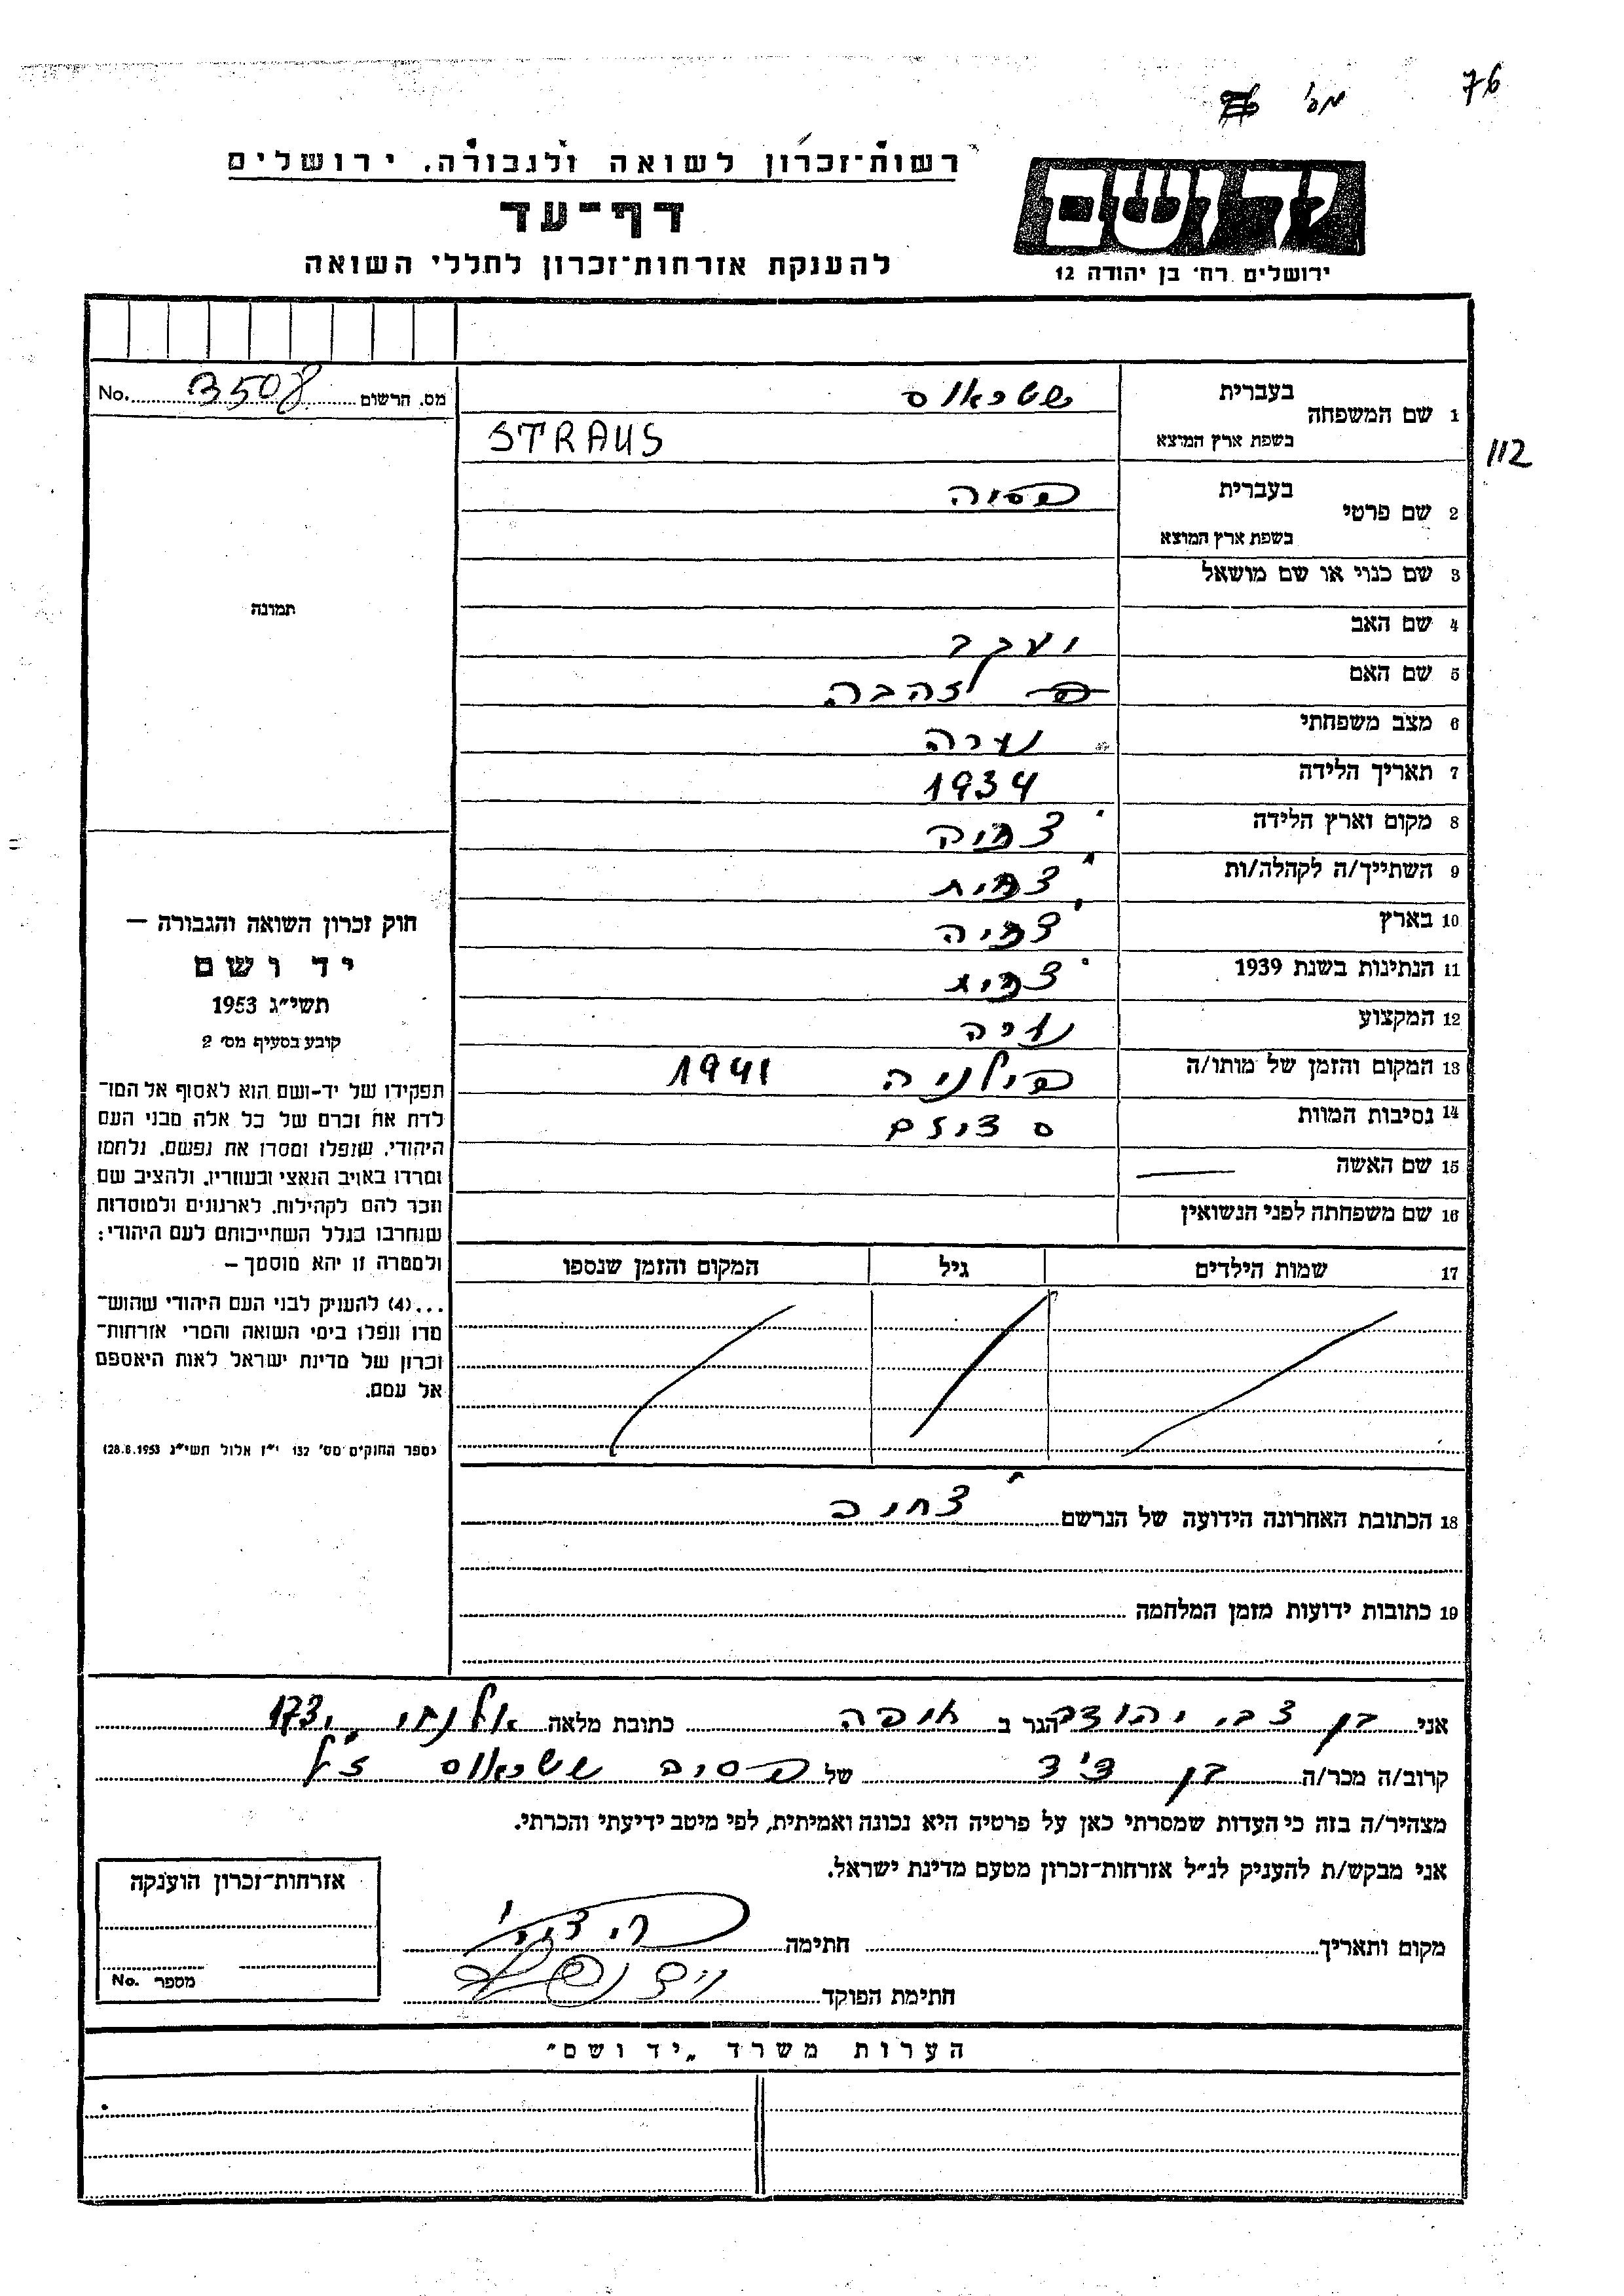 76
מס'
רשות־זכרון לשואה ולגבורה, ירושלים
דף־עד
להענקת אזרחות־זכרון לחללי השואה
יד ושם
ירושלים רח' בן יהודה 12
מס. הרשום 3508 No.
112
1 שם המשפחה
בעברית שטראוס
בשפת ארץ המוצא STRAUS
2 שם פרטי
בעברית פסיה
בשפת ארץ המוצא
3 שם כנוי או שם מושאל
4 שם האב יעקב
5 שם האם זהבה
6 מצב משפחתי נערה
7 תאריך הלידה 1934
8 מקום וארץ הלידה
9 השתייך/ה לקהלה/ות
10 בארץ
11 הנתינות בשנת 1939
12 המקצוע
13 המקום והזמן של מותו/ה 1941
14 נסיבות המוות
15 שם האשה
16 שם משפחתה לפני הנשואין
17 שמות הילדים גיל המקום והזמן שנספו
18 הכתובת האחרונה הידועה של הנרשם
19 כתובות ידועות מזמן המלחמה
תמונה
חוק זכרון השואה והגבורה –
יד ושם
תשי"ג 1953
קובע בסעיף מס' 2
תפקידו של יד-ושם הוא לאסוף אל המו־
לדת את זכרם של כל אלה מבני העם
היהודי, שנפלו ומסרו את נפשם, נלחמו
ומרדו באויב הנאצי ובעוזריו, ולהציב שם
וזכר להם לקהילות, לארגונים ולמוסדות
שנחרבו בגלל השתייכותם לעם היהודי;
ולמטרה זו יהא מוסמך –
...(4) להעניק לבני העם היהודי שהוש־
מדו ונפלו בימי השואה והמרי אזרחות־
זכרון של מדינת ישראל לאות היאספם
אל עמם.
(ספר החוקים מס' 132 י"ז אלול תשי"ג 28.8.1953)
אני בן צבי יהודה הגר ב חיפה כתובת מלאה אלנבי 173
קרוב/ה מכר/ה בן דוד של פסיה שטראוס ז"ל
מצהיר/ה בזה כי העדות שמסרתי כאן על פרטיה היא נכונה ואמיתית, לפי מיטב ידיעתי והכרתי.
אני מבקש/ת להעניק לנ"ל אזרחות־זכרון מטעם מדינת ישראל.
מקום ותאריך חתימה
חתימת הפוקד
אזרחות־זכרון הוענקה
מספר No.
הערות משרד „יד ושם"